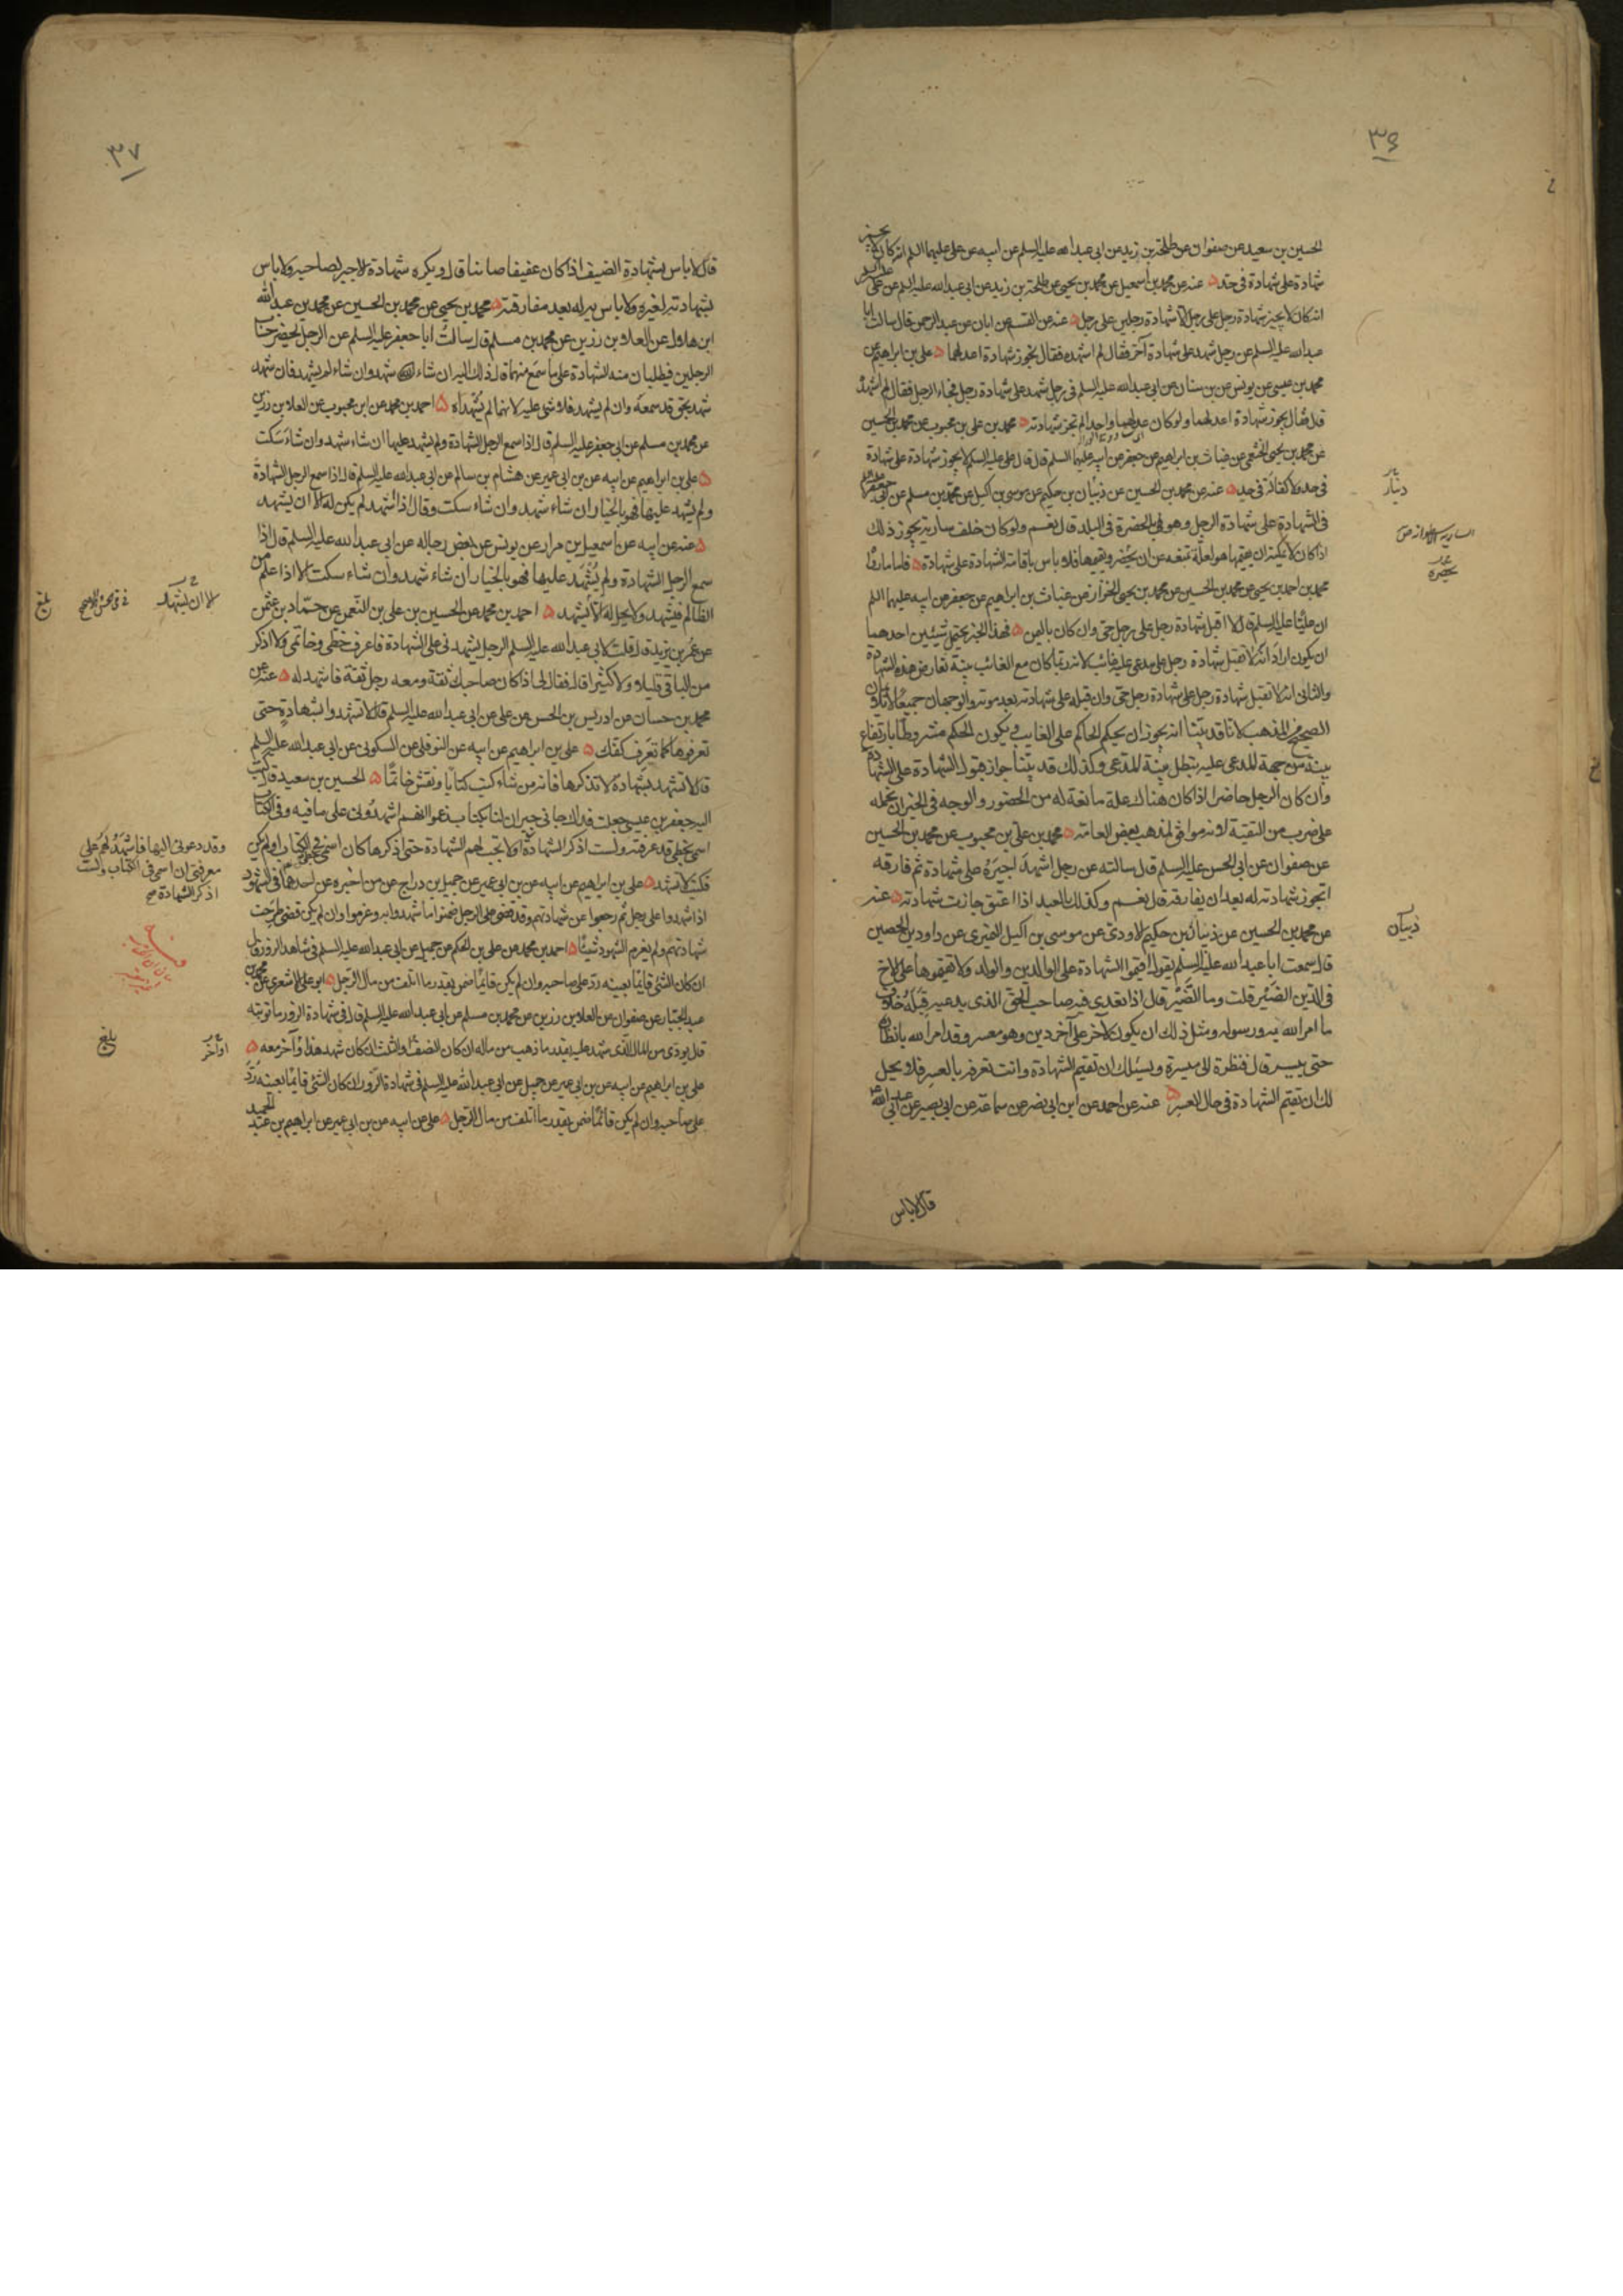 ٣٦
الحسين بن سعيد عن صفوان عن طلحة بن زيد عن ابي عبد الله عليه السلم عن ابيه عن علي عليهما السلم انه كان لا يجيز
شهادة على شهادة في حد عنه عن محمد بن اسمعيل عن محمد بن يحيى عن طلحة بن زيد عن ابي عبد الله عليه السلم عن علي عليه السلم
انه كان لا يجيز شهادة رجل على رجل الا شهادة رجلين على رجل عنه عن القسم عن ابان عن عبد الرحمن قال سالت ابا
عبد الله عليه السلم عن رجل شهد على شهادة آخر فقال لم اشهده فقال يجوز شهادة اعدلهما علي بن ابراهيم عن
محمد بن عيسى عن يونس عن بن سنان عن ابي عبد الله عليه السلم في رجل شهد على شهادة رجل فجاء الرجل فقال لم اشهده
قال فقال يجوز شهادة اعدلهما ولو كان عدلهما واحدا لم تجز شهادته محمد بن علي بن محبوب عن محمد بن الحسين
عن محمد بن يحيى الخثعمي عن غياث بن ابراهيم عن جعفر عن ابيه عليهما السلم قال قال علي عليه السلم لا يجوز شهادة على شهادة
في حد ولا كفالة في حد عنه عن محمد بن الحسين عن ذبيان بن حكيم عن موسى بن اكيل عن محمد بن مسلم عن ابي جعفر
في الشهادة على شهادة الرجل وهو في الحضرة في البلد قال نعم ولو كان خلف سارية يجوز ذلك
اذا كان لا يمكنه ان يقيمها هو لعلة تمنعه عن ان يحضر ويقيمها فلا باس باقامة الشهادة على شهادة فاما ما رواه
محمد بن احمد بن يحيى عن محمد بن الحسين عن محمد بن يحيى الخزاز عن غياث بن ابراهيم عن جعفر عن ابيه عليهما السلم
ان عليا عليه السلم قال لا اقبل شهادة رجل على رجل حي وان كان باليمن فهذا الخبر يحتمل شيئين احدهما
ان يكون اراد انه لا تقبل شهادة رجل على مدعى عليه غائب لانه ربما كان مع الغائب بينة تعارض هذه الشهادة
والثاني انه لا تقبل شهادة رجل على شهادة رجل حي وان قبله على شهادته بعد موته والوجهان جميعا لا يلائمان
الصحيح من المذهب لانا قد بينا انه يجوز ان يحكم الحاكم على الغايب ويكون الحكم مشروطا بارتفاع
بينة من جهة المدعى عليه يبطل بينة المدعي وكذلك قد بينا جواز قبول الشهادة على الشهادة
وان كان الرجل حاضرا اذا كان هناك علة مانعة له من الحضور والوجه في الخبر ان نحمله
على ضرب من التقية لانه موافق لمذهب بعض العامة محمد بن علي بن محبوب عن محمد بن الحسين
عن صفوان عن ابي الحسن عليه السلم قال سالته عن رجل اشهد اجيره على شهادة ثم فارقه
اتجوز شهادته له بعد ان يفارقه قال نعم وكذلك العبد اذا اعتق جازت شهادته عنه
عن محمد بن الحسين عن ذبيان بن حكيم الاودي عن موسى بن اكيل النميري عن داود بن الحصين
قال سمعت ابا عبد الله عليه السلم يقول اقيموا الشهادة على الوالدين والولد ولا تقيموها على الاخ
في الدين الضير قلت وما الضير قال اذا تعدى فيه صاحب الحق الذي يدعيه قبله خلاف
ما امر الله به ورسوله ومثل ذلك ان يكون لآخر على آخر دين وهو معسر وقد امر الله بانظاره
حتى ييسر قال فنظرة الى ميسرة ويسئلك ان تقيم الشهادة وانت تعرفه بالعسر فلا يحل
لك ان تقيم الشهادة في حال العسر عنه عن احمد عن ابن ابي نصر عن سماعة عن ابي بصير عن ابي عبد الله
قال لا باس
دينار
ذبيان
٣٧
قال لا باس بشهادة الضيف اذا كان عفيفا صائنا قال ويكره شهادة الاجير لصاحبه ولا باس
بشهادته لغيره ولا باس به له بعد مفارقته محمد بن يحيى عن محمد بن الحسين عن محمد بن عبد الله
ابن هلال عن العلاء بن رزين عن محمد بن مسلم قال سالت ابا جعفر عليه السلم عن الرجل يحضر حساب
الرجلين فيطلبان منه الشهادة على ما سمع منهما قال ذلك اليه ان شاء شهد وان شاء لم يشهد فان شهد
شهد بحق قد سمعه وان لم يشهد فلا شيء عليه لانهما لم يشهداه احمد بن محمد عن ابن محبوب عن العلا بن رزين
عن محمد بن مسلم عن ابي جعفر عليه السلم قال اذا سمع الرجل الشهادة ولم يشهد عليها ان شاء شهد وان شاء سكت
علي بن ابراهيم عن ابيه عن بن ابي عمير عن هشام بن سالم عن ابي عبد الله عليه السلم قال اذا سمع الرجل الشهادة
ولم يشهد عليها فهو بالخيار ان شاء شهد وان شاء سكت وقال اذا اشهد لم يكن له الا ان يشهد
عنه عن ابيه عن اسمعيل بن مرار عن يونس عن بعض رجاله عن ابي عبد الله عليه السلم قال اذا
سمع الرجل الشهادة ولم يشهد عليها فهو بالخيار ان شاء شهد وان شاء سكت الا اذا علم من
الظالم فيشهد ولا يحل له الا يشهد احمد بن محمد عن الحسين بن علي بن النعمن عن حماد بن عثمن
عن عمر بن يزيد قال قلت لابي عبد الله عليه السلم الرجل يشهدني على الشهادة فاعرف خطي وخاتمي ولا اذكر
من الباقي قليلا ولا كثيرا قال فقال لي اذا كان صاحبك ثقة ومعه رجل ثقة فاشهد له عنه عن
محمد بن حسان عن ادريس بن الحسن عن علي عن ابي عبد الله عليه السلم قال لا تشهدوا بشهادة حتى
تعرفوها كما تعرف كفك علي بن ابراهيم عن ابيه عن النوفلي عن السكوني عن ابي عبد الله عليه السلم
قال لا تشهد بشهادة لا تذكرها فانه من شاء كتب كتابا ونقش خاتما الحسين بن سعيد قال كتب
اليه جعفر بن عيسى جعلت فداك جاءني جيران لنا بكتاب زعموا انهم اشهدوني على ما فيه وفي الكتاب
اسمي بخطي قد عرفته ولست اذكر الشهادة او لا تجب لهم الشهادة حتى اذكرها كان اسمي في الكتاب او لم يكن
فكتب لا تشهد علي بن ابراهيم عن ابيه عن بن ابي عمير عن جميل بن دراج عن من اخبره عن احدهما في الشهود
اذا شهدوا على رجل ثم رجعوا عن شهادتهم وقد قضي على الرجل ضمنوا ما شهدوا به وغرموا وان لم يكن قضي طرحت
شهادتهم ولم يغرم الشهود شيئا احمد بن محمد عن علي بن الحكم عن جميل عن ابي عبد الله عليه السلم في شاهد الزور قال
ان كان الشئ قايما بعينه رد على صاحبه وان لم يكن قايما ضمن بقدر ما اتلف من مال الرجل ابو علي الاشعري عن محمد بن
عبد الجبار عن صفوان عن العلا بن رزين عن محمد بن مسلم عن ابي عبد الله عليه السلم قال في شهادة الزور ما توبته
قال يودي من المال الذي شهد عليه بقدر ما ذهب من ماله ان كان النصف او الثلث ان كان شهد هذا وآخر معه
علي بن ابراهيم عن ابيه عن بن ابي عمير عن جميل عن ابي عبد الله عليه السلم في شهادة الزور ان كان الشئ قايما بعينه رد
على صاحبه وان لم يكن قائما ضمن بقدر ما اتلف من مال الرجل علي عن ابيه عن بن ابي عمير عن ابراهيم بن عبد الحميد
الا ان يشهد
بلغ
وقد دعوني اليها فاشهد لهم على
معرفتي ان اسمي في الكتاب ولست
اذكر الشهادة صح
او آخر
بلغ